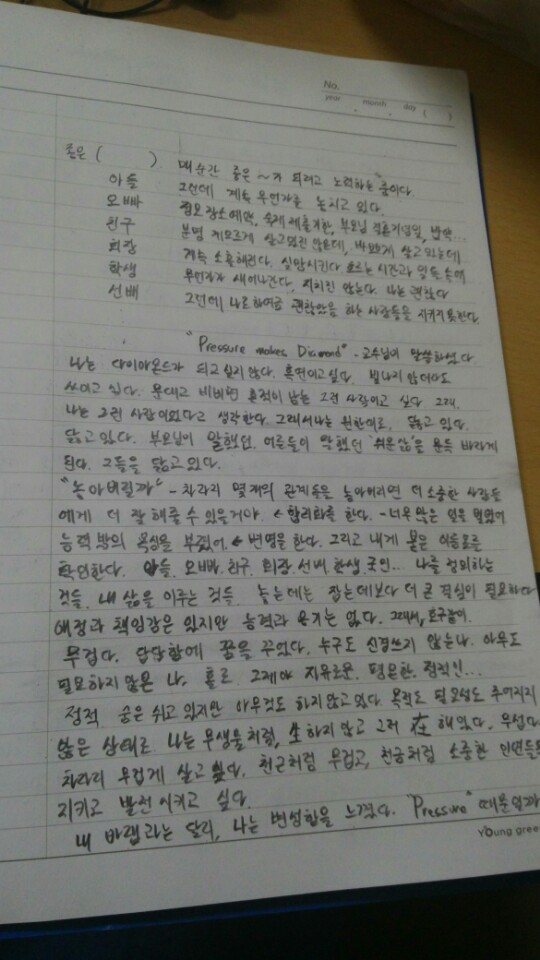 No.
year . month . day ( )
좋은 ( ) 매순간 좋은 ~가 되려고 노력하는 중이다.
아들 그런데 계속 무언가를 놓치고 있다.
오빠 집모장소예약, 숙제 제출기한, 부모님 결혼기념일, 밥약...
친구 분명 게으르게 살고있진 않은데, 바쁘게 살고있는데
회장 계속 소홀해진다. 실망시킨다. 흐르는 시간과 일들 속에
학생 무언가가 새어나간다. 지치진 않는다. 나는 괜찮다
선배 그런데 나로하여금 괜찮았음 하는 사람들을 지키지 못한다.
"Pressure makes Diamond" - 교수님이 말씀하셨다
나는 다이아몬드가 되고 싶지 않다. 흑연이고 싶다. 빛나지 않더라도
쓰이고 싶다. 문대고 비비면 흔적이 남는 그런 사람이고 싶다. 그래.
나는 그런 사람이었다고 생각한다. 그래서 나는 원한대로, 닳고 있다.
닳고 있다. 부모님이 말했던, 어른들이 말했던 '쉬운 삶'을 문득 바라게
된다. 그들을 닮고 있다.
"놓아버릴까" - 차라리 몇개의 관계들을 놓아버리면 더 소중한 사람들
에게 더 잘해줄 수 있을거야. ← 합리화를 한다. - 너무 많은 일을 벌였어
능력 밖의 욕심을 부렸어. ← 변명을 한다. 그리고 내게 붙은 이름표를
확인한다. 아들, 오빠, 친구, 회장, 선배, 학생, 군인... 나를 정의하는
것들. 내 삶을 이루는 것들. 놓는데는 잡는데보다 더 큰 결심이 필요하다
애정과 책임감은 있지만 능력과 용기는 없다. 그래서, 호구같이.
무겁다. 답답함에 꿈을 꾸었다. 누구도 신경쓰지 않는 나. 아무도
필요하지 않은 나. 홀로. 그제야 자유로운, 평온한, 정적인...
정적. 숨은 쉬고 있지만 아무것도 하지 않고 있다. 목적도 필요성도 주어지지
않은 상태로 나는 무생물처럼, 生하지 않고 그저 在해있다. 무섭다.
차라리 무겁게 살고 싶다. 천근처럼 무겁고, 천금처럼 소중한 인연들을
지키고 발전시키고 싶다.
내 바램과는 달리, 나는 변성함을 느꼈다. "Pressure" 때문일까
Young gree